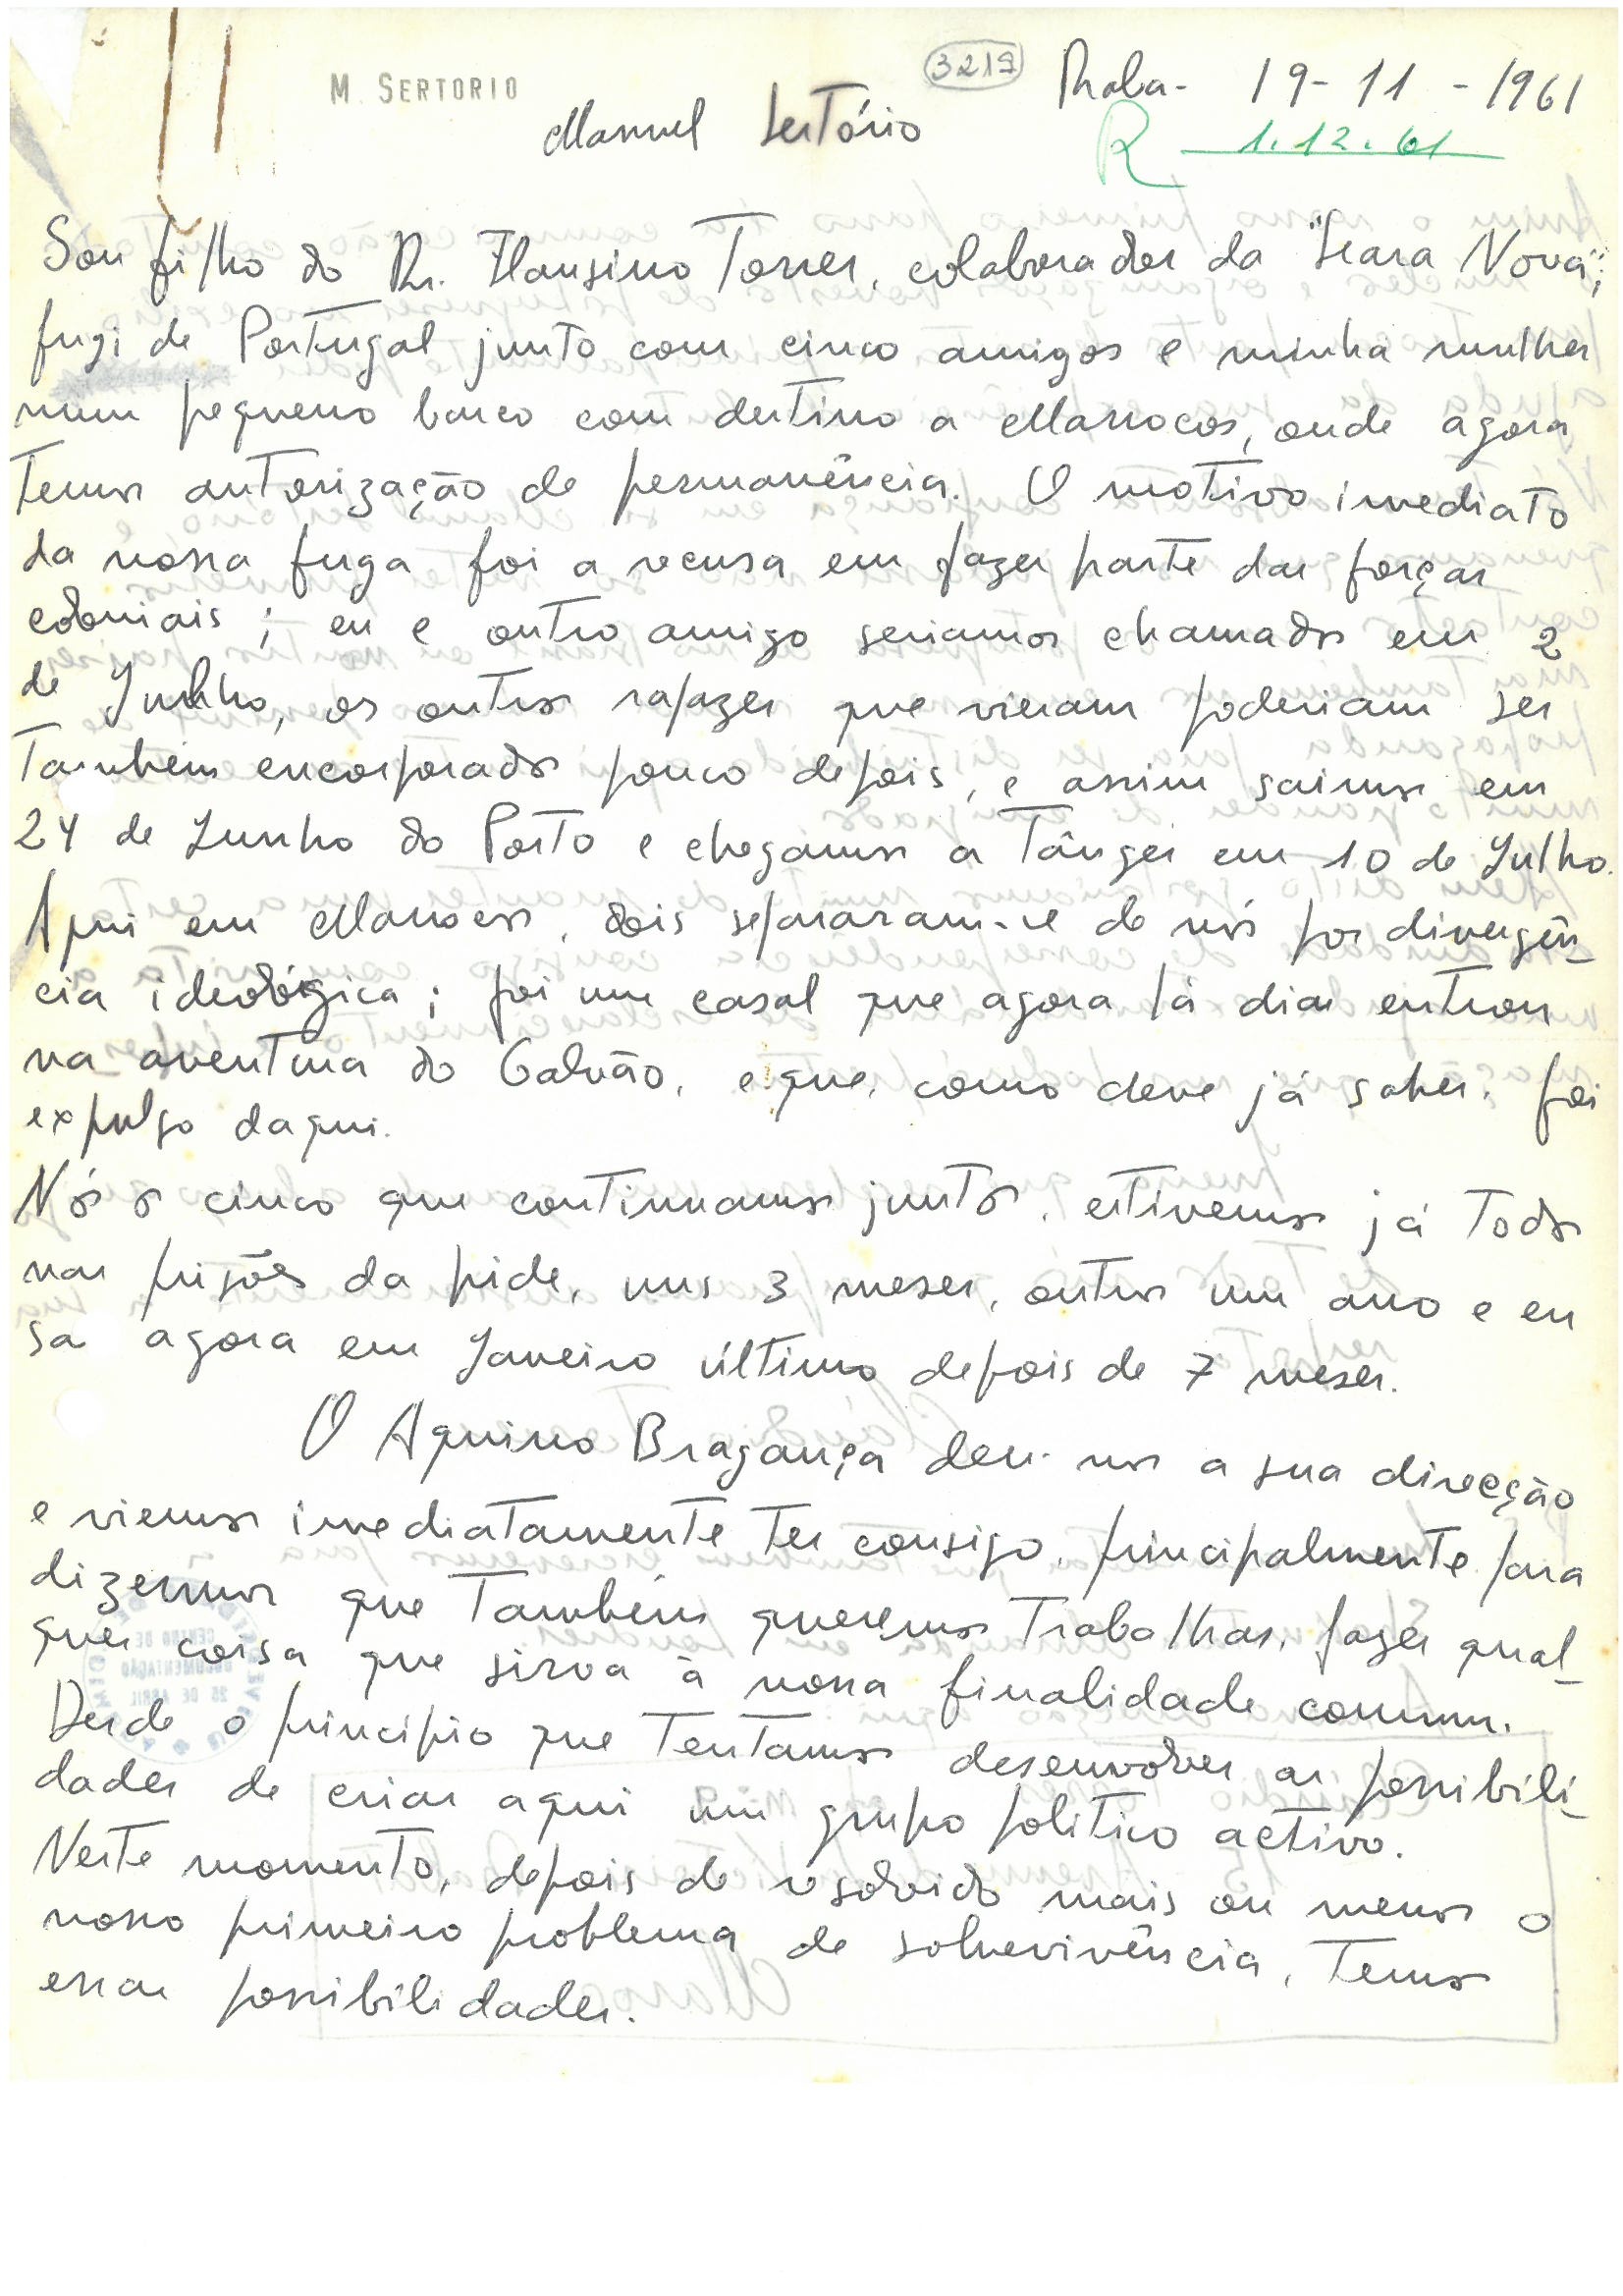 M. SERTORIO
3219
Raba- 19-11-1961
Manuel Sertório
R 1.12.61
Sou filho do Dr. Flausino Torres, colaborador da "Seara Nova";
fugi de Portugal junto com cinco amigos e minha mulher
num pequeno barco com destino a Marrocos, onde agora
temos autorização de permanência. O motivo imediato
da nossa fuga foi a recusa em fazer parte das forças
coloniais; eu e outro amigo seriamos chamados em 2
de Julho, os outros rapazes que vieram poderiam ser
também encorporados pouco depois, e assim saimos em
24 de Junho do Porto e chegamos a Tânger em 10 de Julho.
Aqui em Marrocos, dois separaram-se de nós por divergên-
cia ideológica; foi um casal que agora há dias entrou
na aventura do Galvão, e que, como deve já saber, foi
expulso daqui.
Nós os cinco que continuamos juntos, estivemos já todos
nas prisões da pide, uns 3 meses, outros um ano e eu
saí agora em Janeiro último depois de 7 meses.
O Aquino Bragança deu-nos a sua direcção
e viemos imediatamente ter consigo, principalmente para
dizermos que também queremos trabalhar, fazer qual-
quer coisa que sirva à nossa finalidade comum.
Desde o princípio que tentamos desenvolver as possibili-
dades de criar aqui um grupo politico activo.
Neste momento, depois de resolvido mais ou menos o
nosso primeiro problema de sobrevivência, temos
essas possibilidades.